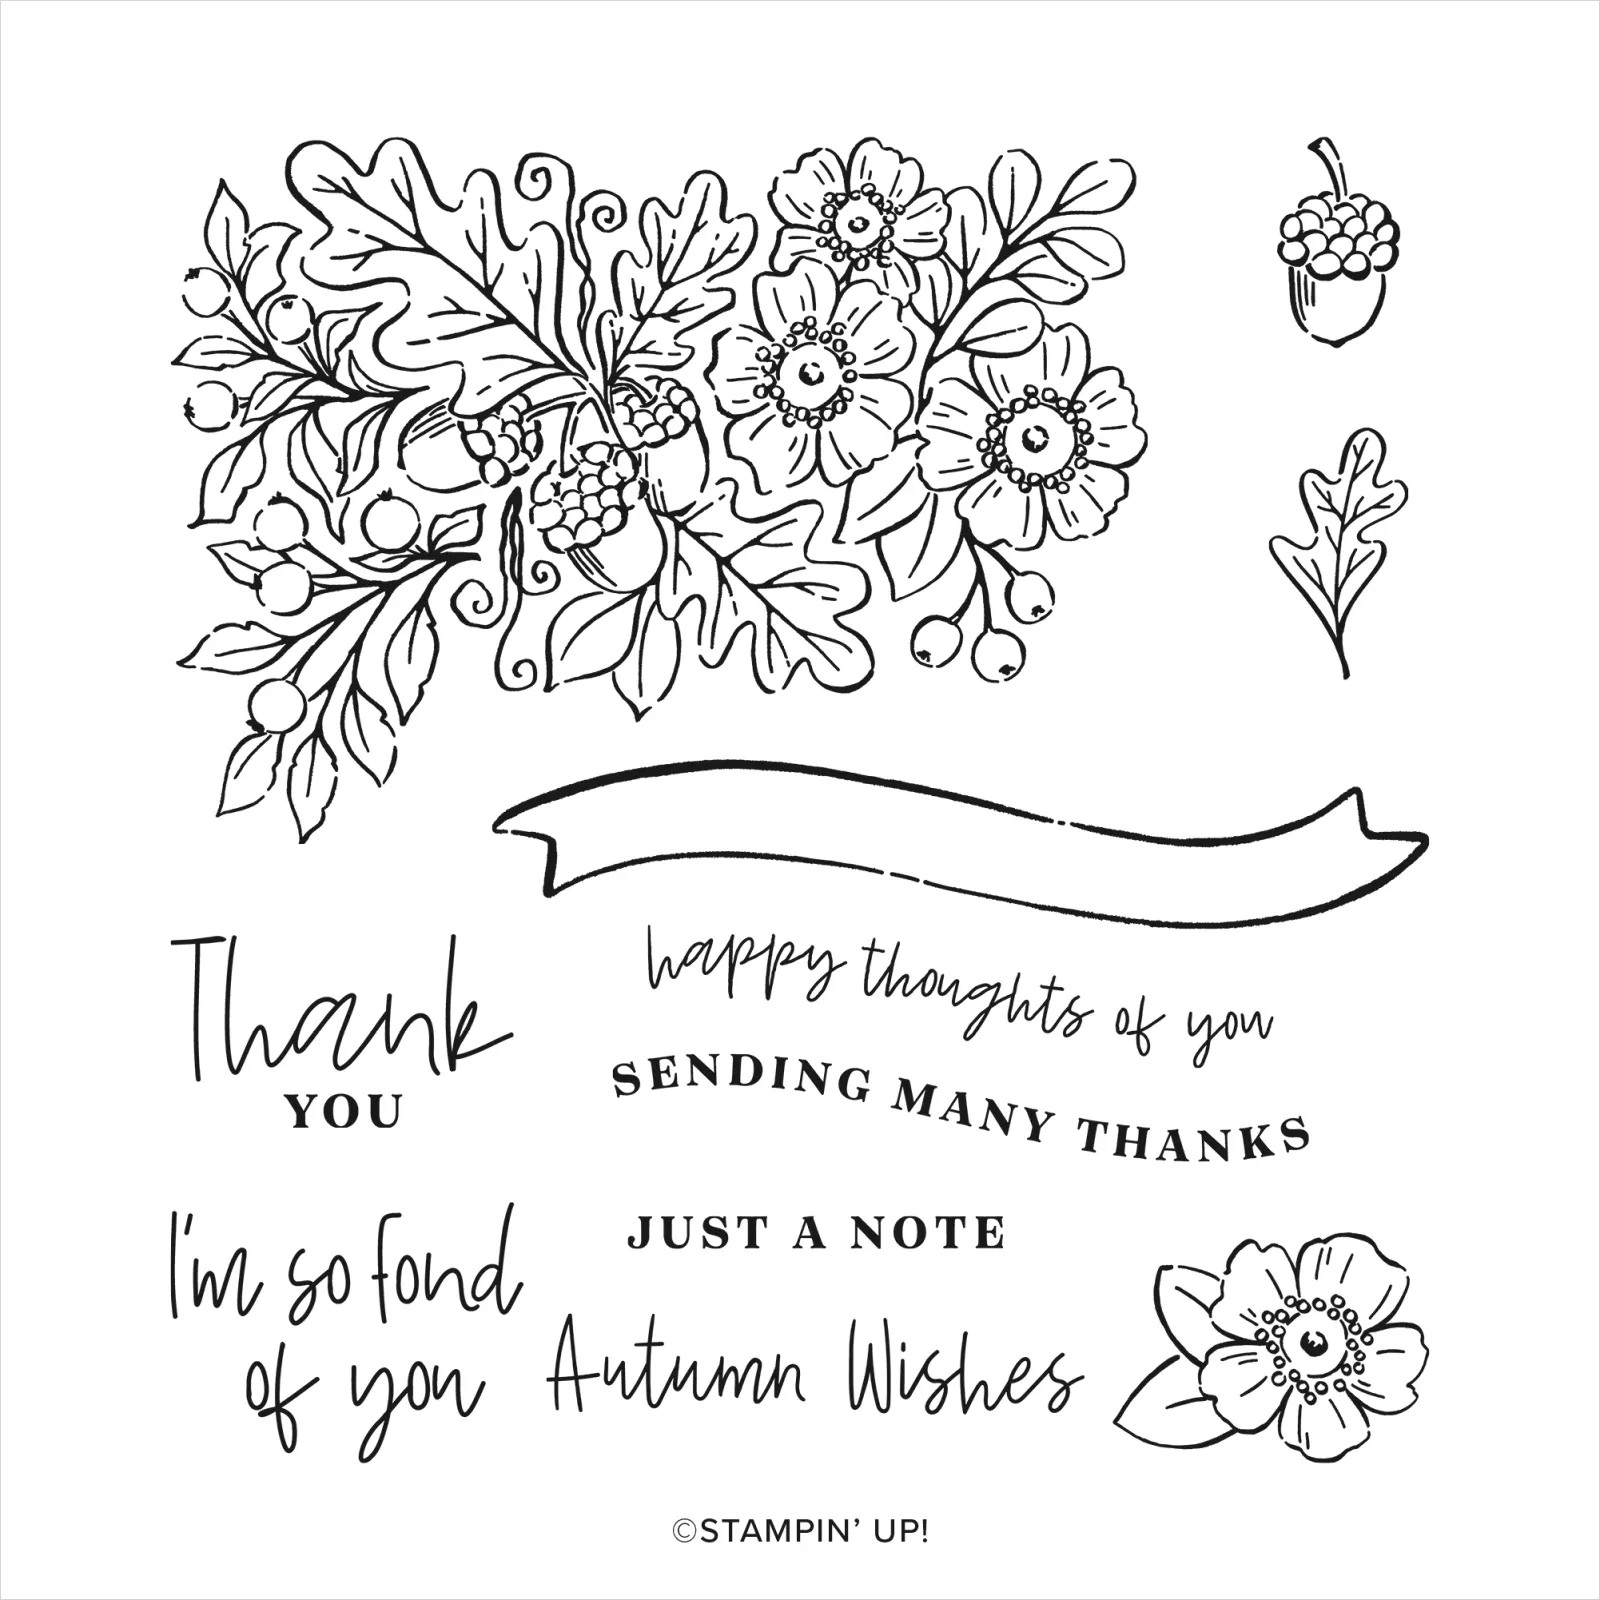 Thank
YOU
happy thoughts of you
SENDING MANY THANKS
I'm so fond
of you
JUST A NOTE
Autumn Wishes
©STAMPIN' UP!